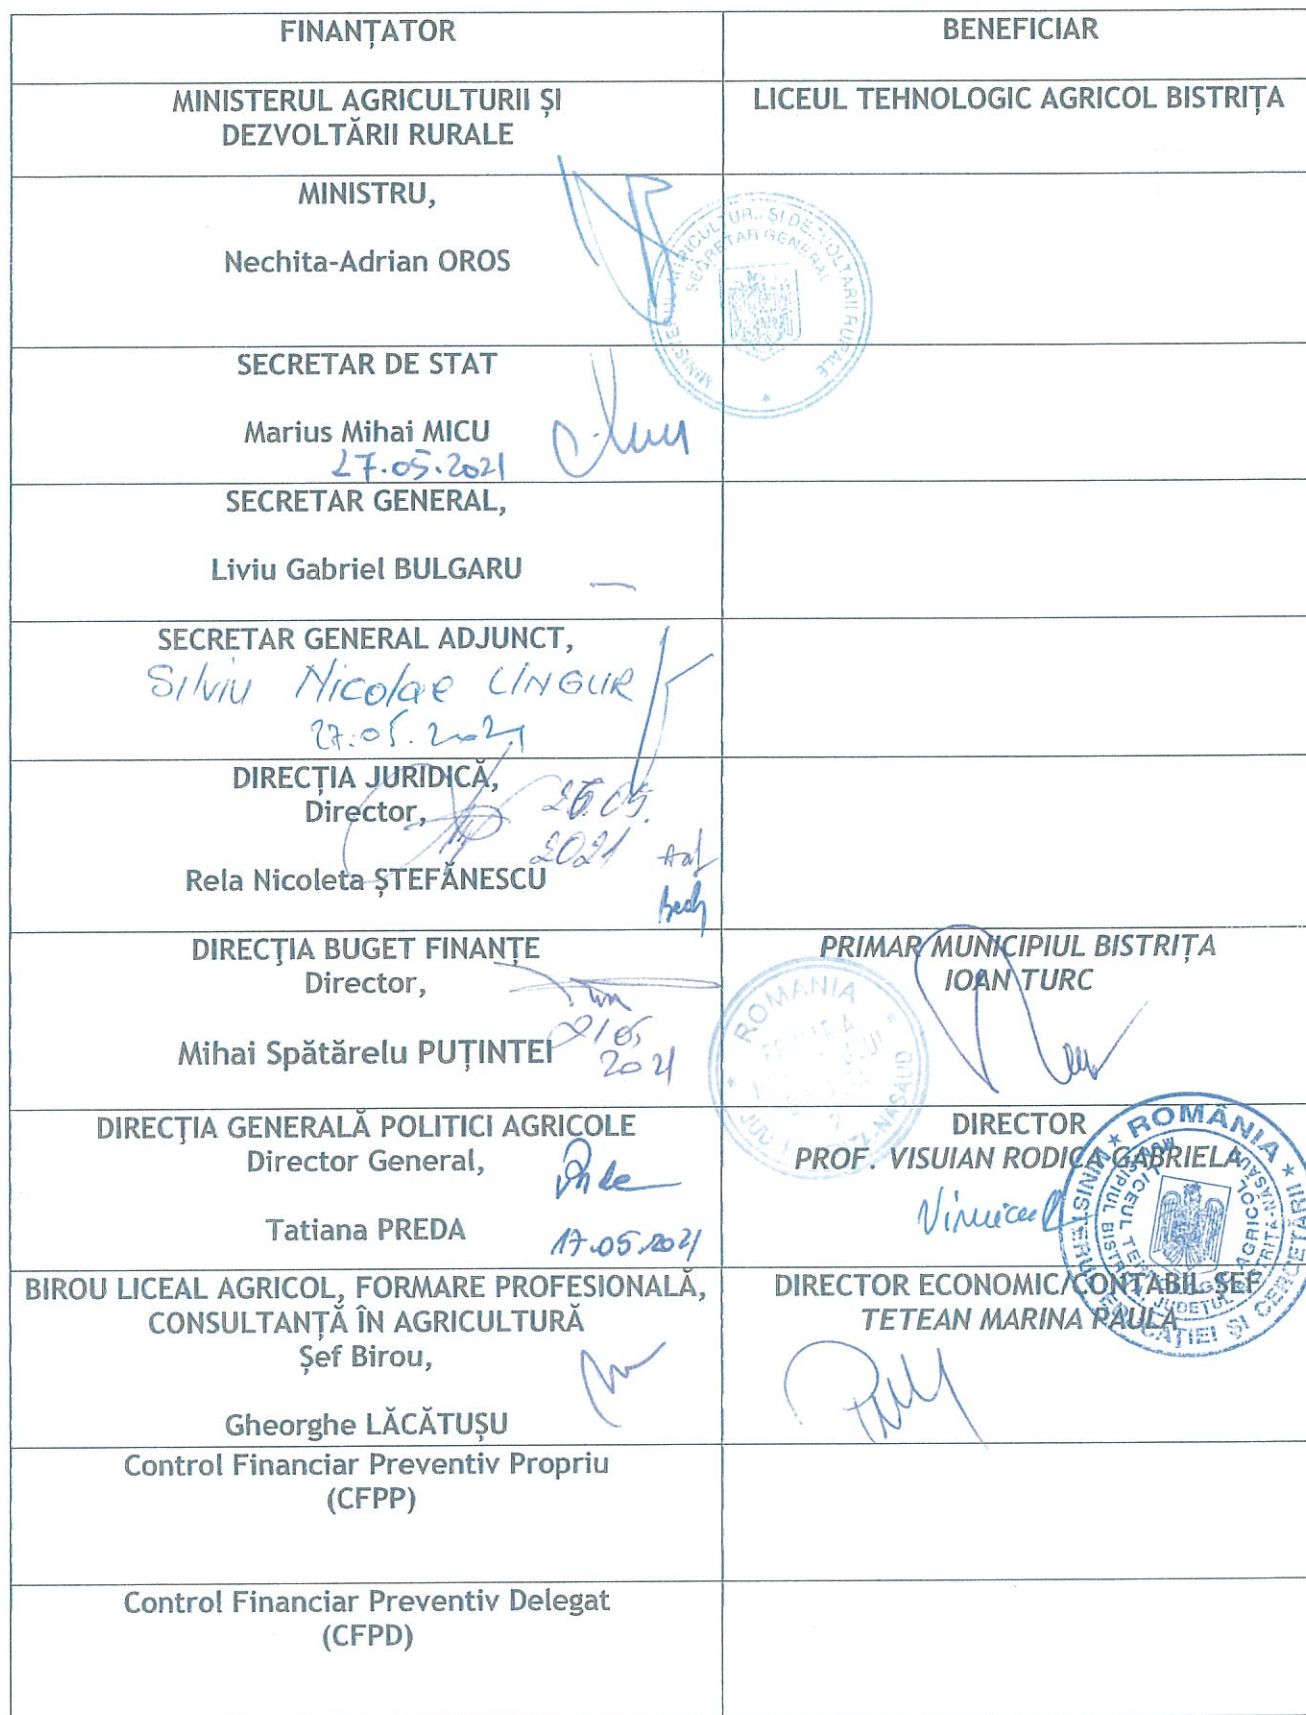 FINANȚATOR
BENEFICIAR
MINISTERUL AGRICULTURII ȘI
DEZVOLTĂRII RURALE
LICEUL TEHNOLOGIC AGRICOL BISTRIȚA
MINISTRU,
Nechita-Adrian OROS
SECRETAR GENERAL
SECRETAR DE STAT
Marius Mihai MICU
27.05.2021
SECRETAR GENERAL,
Liviu Gabriel BULGARU
SECRETAR GENERAL ADJUNCT,
Silviu Nicolae LINGUR
27.05.2021
DIRECȚIA JURIDICĂ,
Director,
2021
Rela Nicoleta ȘTEFĂNESCU
DIRECŢIA BUGET FINANȚE
Director,
Mihai Spătărelu PUȚINTEI
2021
PRIMAR MUNICIPIUL BISTRIȚA
IOAN TURC
ROMANIA
DIRECŢIA GENERALĂ POLITICI AGRICOLE
Director General,
Tatiana PREDA
17.05.2021
DIRECTOR
PROF. VISUIAN RODICA GABRIELA
ROMÂNIA
MINISTERUL EDUCAȚIEI ȘI CERCETĂRII
BIROU LICEAL AGRICOL, FORMARE PROFESIONALĂ,
CONSULTANȚĂ ÎN AGRICULTURĂ
Șef Birou,
Gheorghe LĂCĂTUȘU
DIRECTOR ECONOMIC/CONTABIL ȘEF
TETEAN MARINA PAULA
Control Financiar Preventiv Propriu
(CFPP)
Control Financiar Preventiv Delegat
(CFPD)